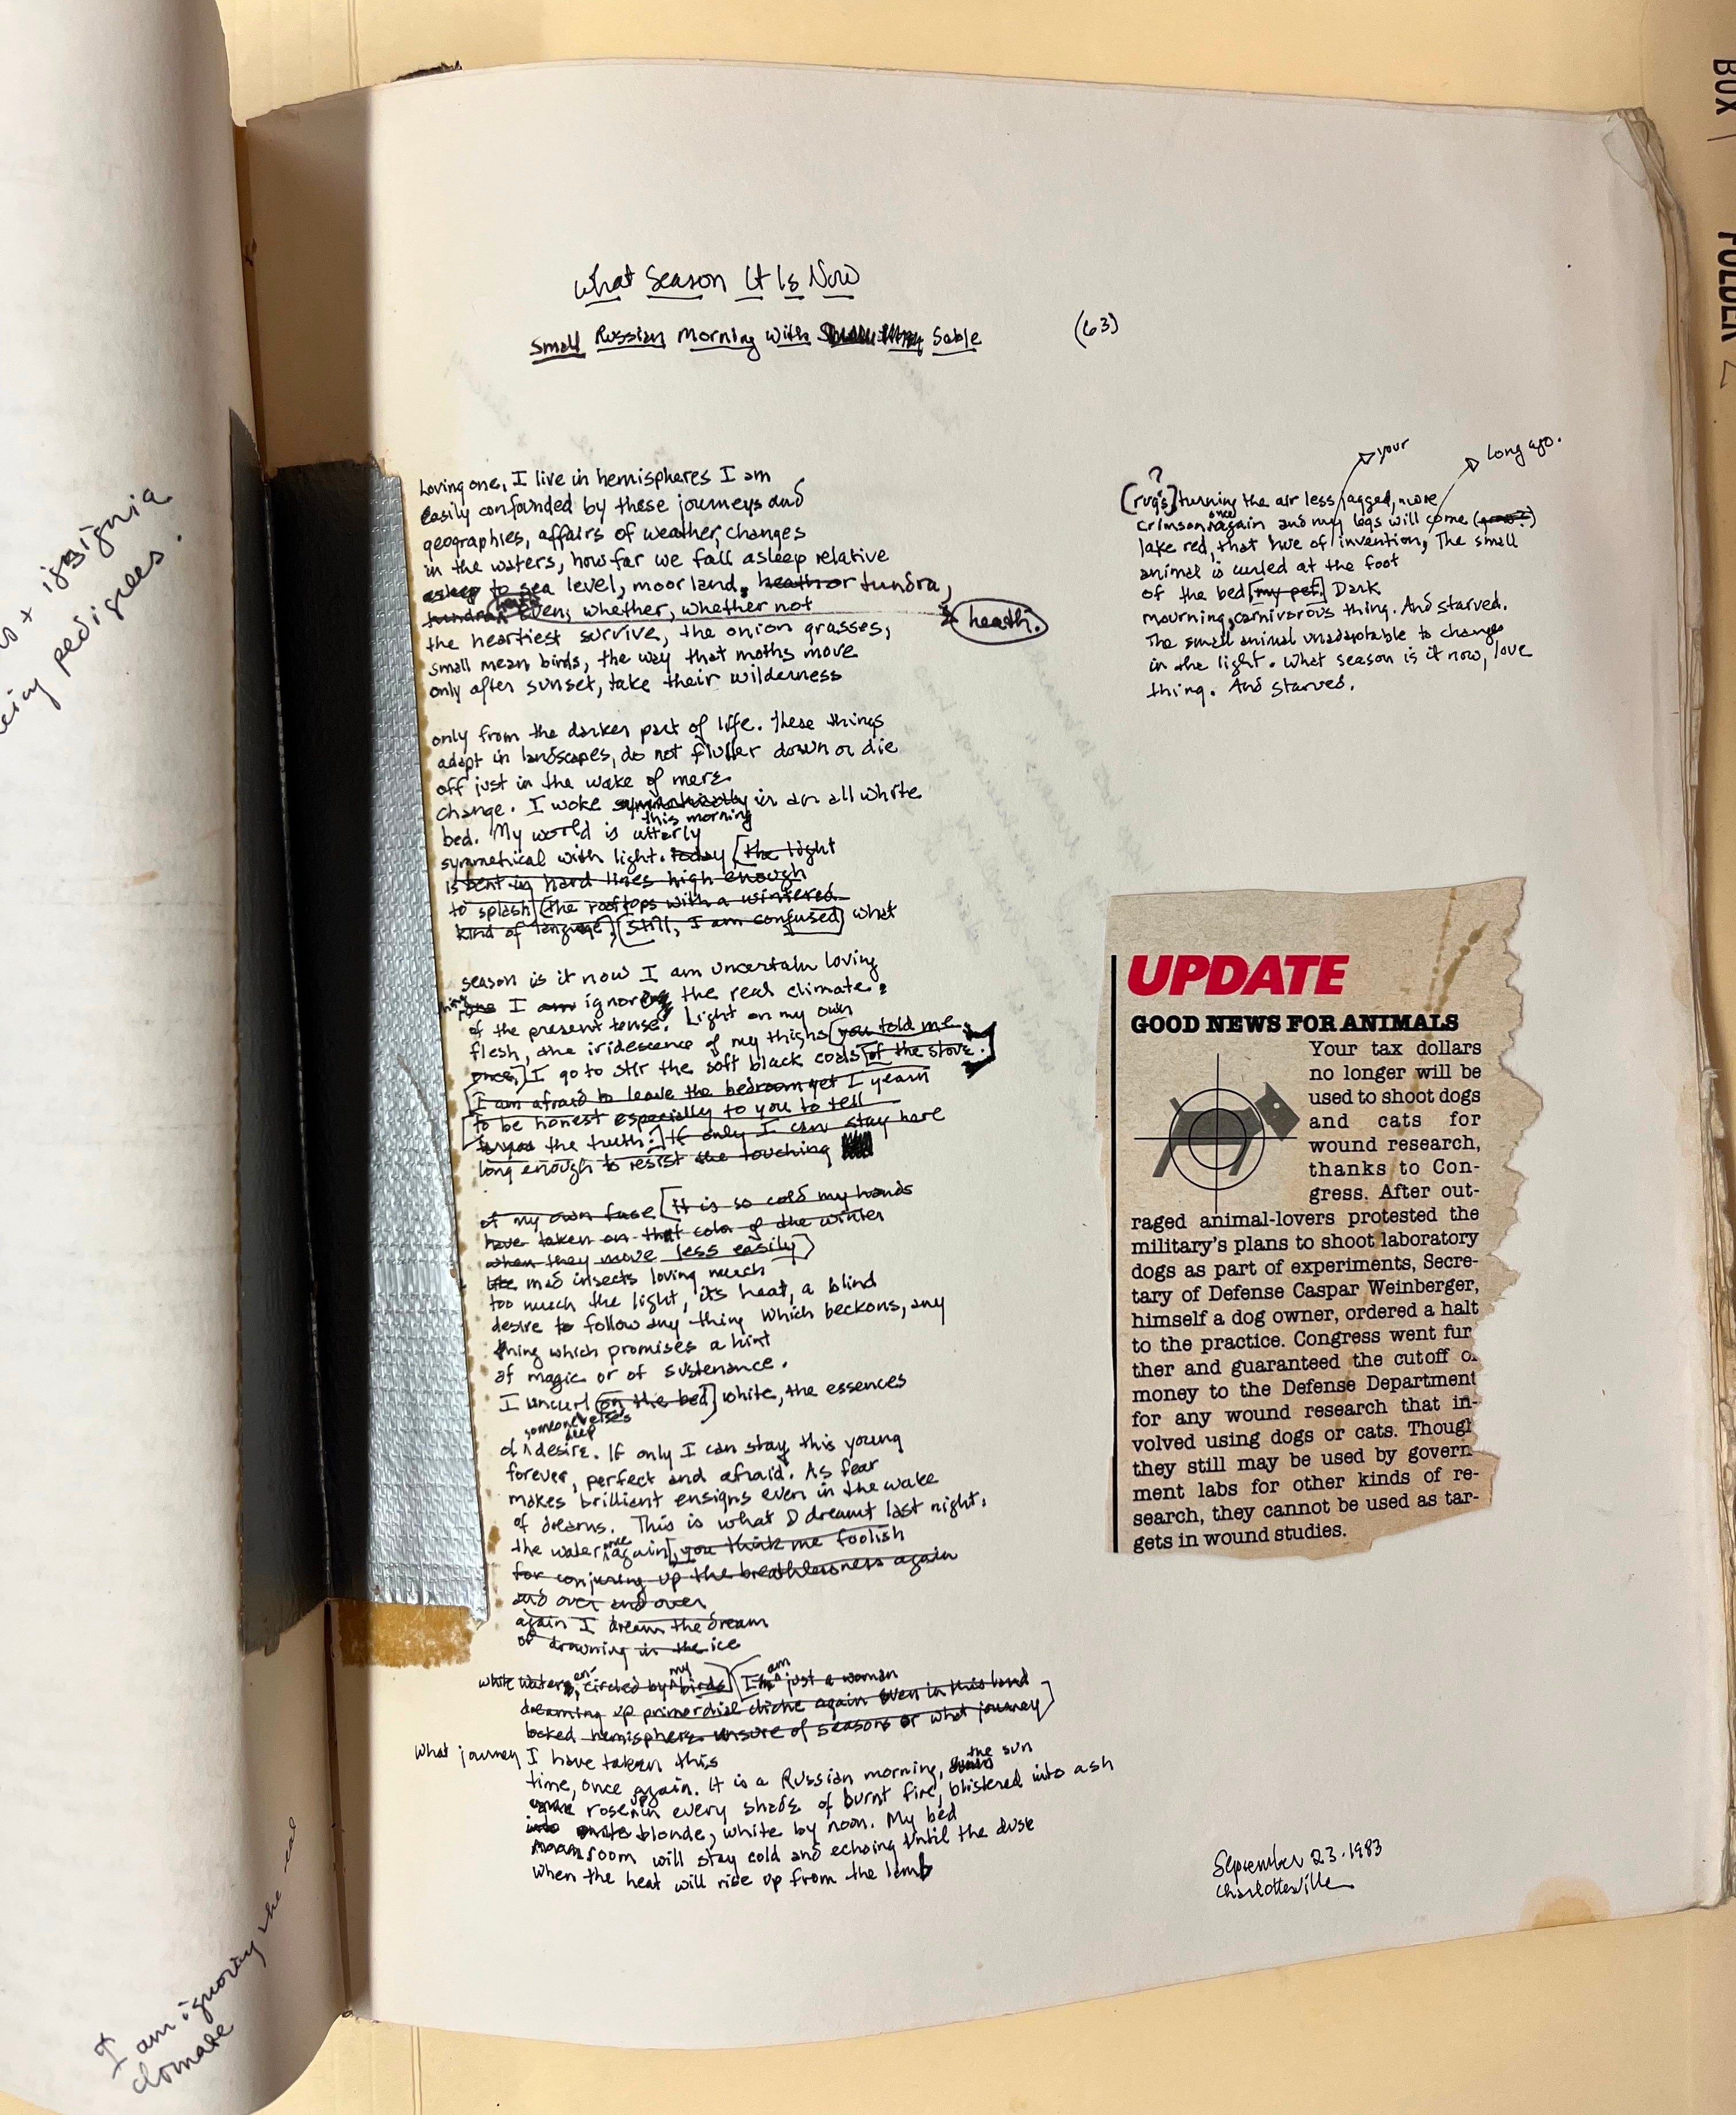 BOX 1 FOLDER 2
insignia
pedigrees.
I am ignoring the real
climate
What Season It Is Now
Small Russian Morning With Sable
(63)
Loving one, I live in hemispheres I am
easily confounded by these journeys and
geographies, affairs of weather, changes
in the waters, how far we fall asleep relative
asleep to sea level, moorland, heath or tundra,
tundra heath even, whether, whether not
heath.
the heartiest survive, the onion grasses,
small mean birds, the way that moths move
only after sunset, take their wilderness
only from the darker part of life. These things
adapt in landscapes, do not flutter down or die
off just in the wake of mere
change. I woke symmetrically in an all white
bed. My world is utterly
this morning
symmetrical with light. today [the light
is bent in hard lines high enough
to splash [the rooftops with a wintered
kind of language] [still, I am confused] what
season is it now I am uncertain loving
one I am ignoring the real climate
of the present tense. Light on my own
flesh, the iridescence of my thighs [you told me
once,] I go to stir the soft black coals [of the stove.]
[I am afraid to leave the bedroom yet I yearn
[to be honest especially to you to tell
the truth:] If only I can stay here
long enough to resist the touching
of my own fuse [it is so cold my hands
have taken on that color of the winter
when they move less easily]
like mad insects loving much
too much the light, its heat, a blind
desire to follow any thing which beckons, any
thing which promises a hint
of magic or of sustenance.
I uncurl [on the bed] white, the essences
someone else's
deep
of desire. If only I can stay this young
forever, perfect and afraid. As fear
makes brilliant ensigns even in the wake
of dreams. This is what I dreamt last night,
the water once again [, you think me foolish
for conjuring up the breathlessness again
and over and over
again I dream the dream
of drowning in the ice
white waters, encircled by my birds] [I am just a woman
dreaming up primordial cliche again even in this land
locked hemisphere unsure of seasons or what journey]
What journey I have taken this
time, once again. It is a Russian morning, the sun
rose in every shade of burnt fire, blistered into ash
into white blonde, white by noon. My bed
room will stay cold and echoing until the dusk
when the heat will rise up from the lamb
?
[rug's] turning the air less jagged, more
your
long ago.
crimson once again and my legs will come (grow?)
lake red, that hue of invention, The small
animal is curled at the foot
of the bed [my pet.] Dark
mourning, carnivorous thing. And starved.
The small animal unadaptable to changes
in the light. What season is it now, love
thing. And starved.
UPDATE
GOOD NEWS FOR ANIMALS
Your tax dollars
no longer will be
used to shoot dogs
and cats for
wound research,
thanks to Con-
gress. After out-
raged animal-lovers protested the
military's plans to shoot laboratory
dogs as part of experiments, Secre-
tary of Defense Caspar Weinberger,
himself a dog owner, ordered a halt
to the practice. Congress went fur
ther and guaranteed the cutoff o
money to the Defense Department
for any wound research that in-
volved using dogs or cats. Though
they still may be used by govern
ment labs for other kinds of re-
search, they cannot be used as tar-
gets in wound studies.
September 23. 1983
Charlottesville